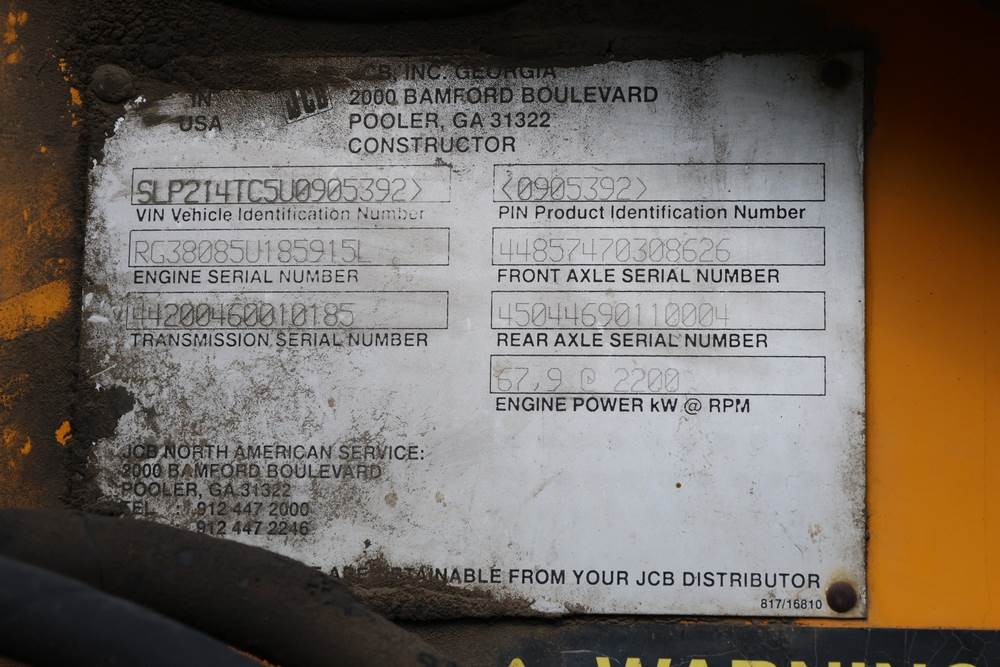 JCB, INC. GEORGIA
IN
USA
JCB
2000 BAMFORD BOULEVARD
POOLER, GA 31322
CONSTRUCTOR
SLP214TC5U0905392>
<0905392>
VIN Vehicle Identification Number
PIN Product Identification Number
RG38085U185915L
44857470308626
ENGINE SERIAL NUMBER
FRONT AXLE SERIAL NUMBER
44200460010185
45044690110004
TRANSMISSION SERIAL NUMBER
REAR AXLE SERIAL NUMBER
67,9 @ 2200
ENGINE POWER kW @ RPM
JCB NORTH AMERICAN SERVICE:
2000 BAMFORD BOULEVARD
POOLER, GA 31322
TEL : 912 447 2000
912 447 2246
ARE OBTAINABLE FROM YOUR JCB DISTRIBUTOR
817/16810
WARNING